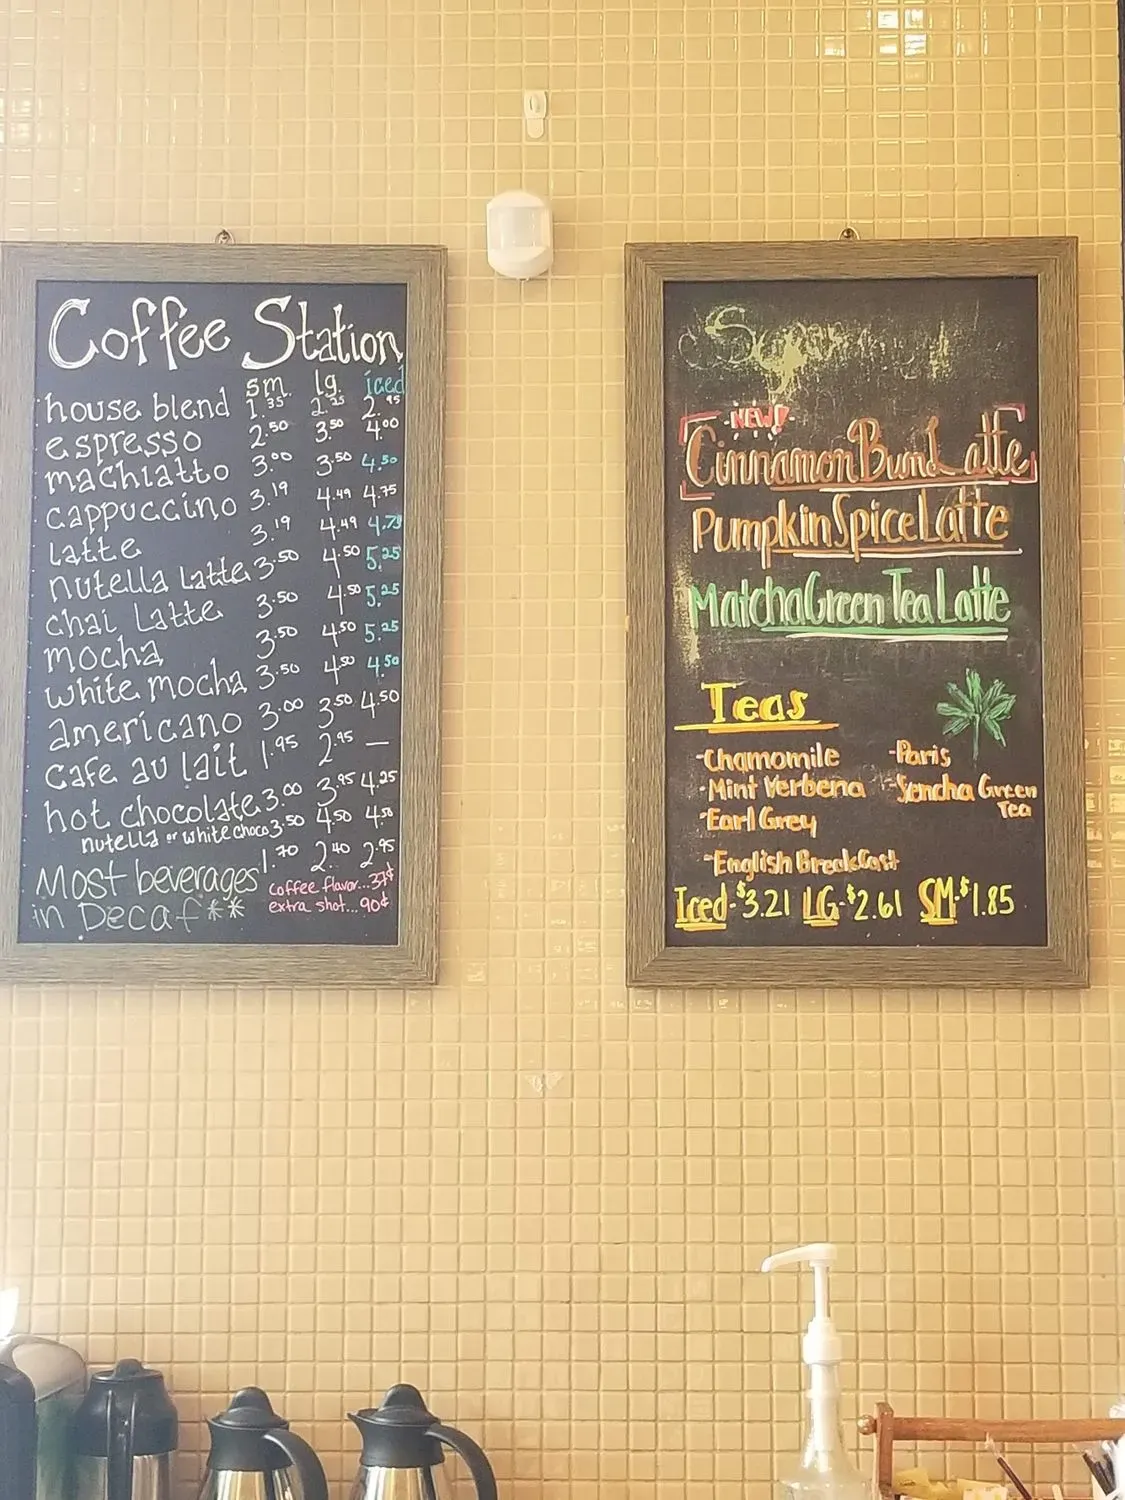 Coffee Station
sm. lg. iced
house blend 1.35 2.25 2.95
espresso 2.50 3.50 4.00
machiatto 3.00 3.50 4.50
cappuccino 3.19 4.49 4.75
latte 3.19 4.49 4.75
nutella Latte 3.50 4.50 5.25
chai Latte 3.50 4.50 5.25
mocha 3.50 4.50 5.25
white mocha 3.50 4.50 4.50
americano 3.00 3.50 4.50
cafe au lait 1.95 2.95 —
hot chocolate 3.00 3.95 4.25
nutella or white choco 3.50 4.50 4.50
1.70 2.40 2.95
Most beverages
in Decaf**
coffee flavor...37¢
extra shot...90¢
NEW!
Cinnamon Bun Latte
Pumpkin Spice Latte
Matcha Green Tea Latte
Teas
-Chamomile
-Mint Verbena
-Earl Grey
-English Breakfast
-Paris
-Sencha Green
Tea
Iced-$3.21 LG-$2.61 SM-$1.85